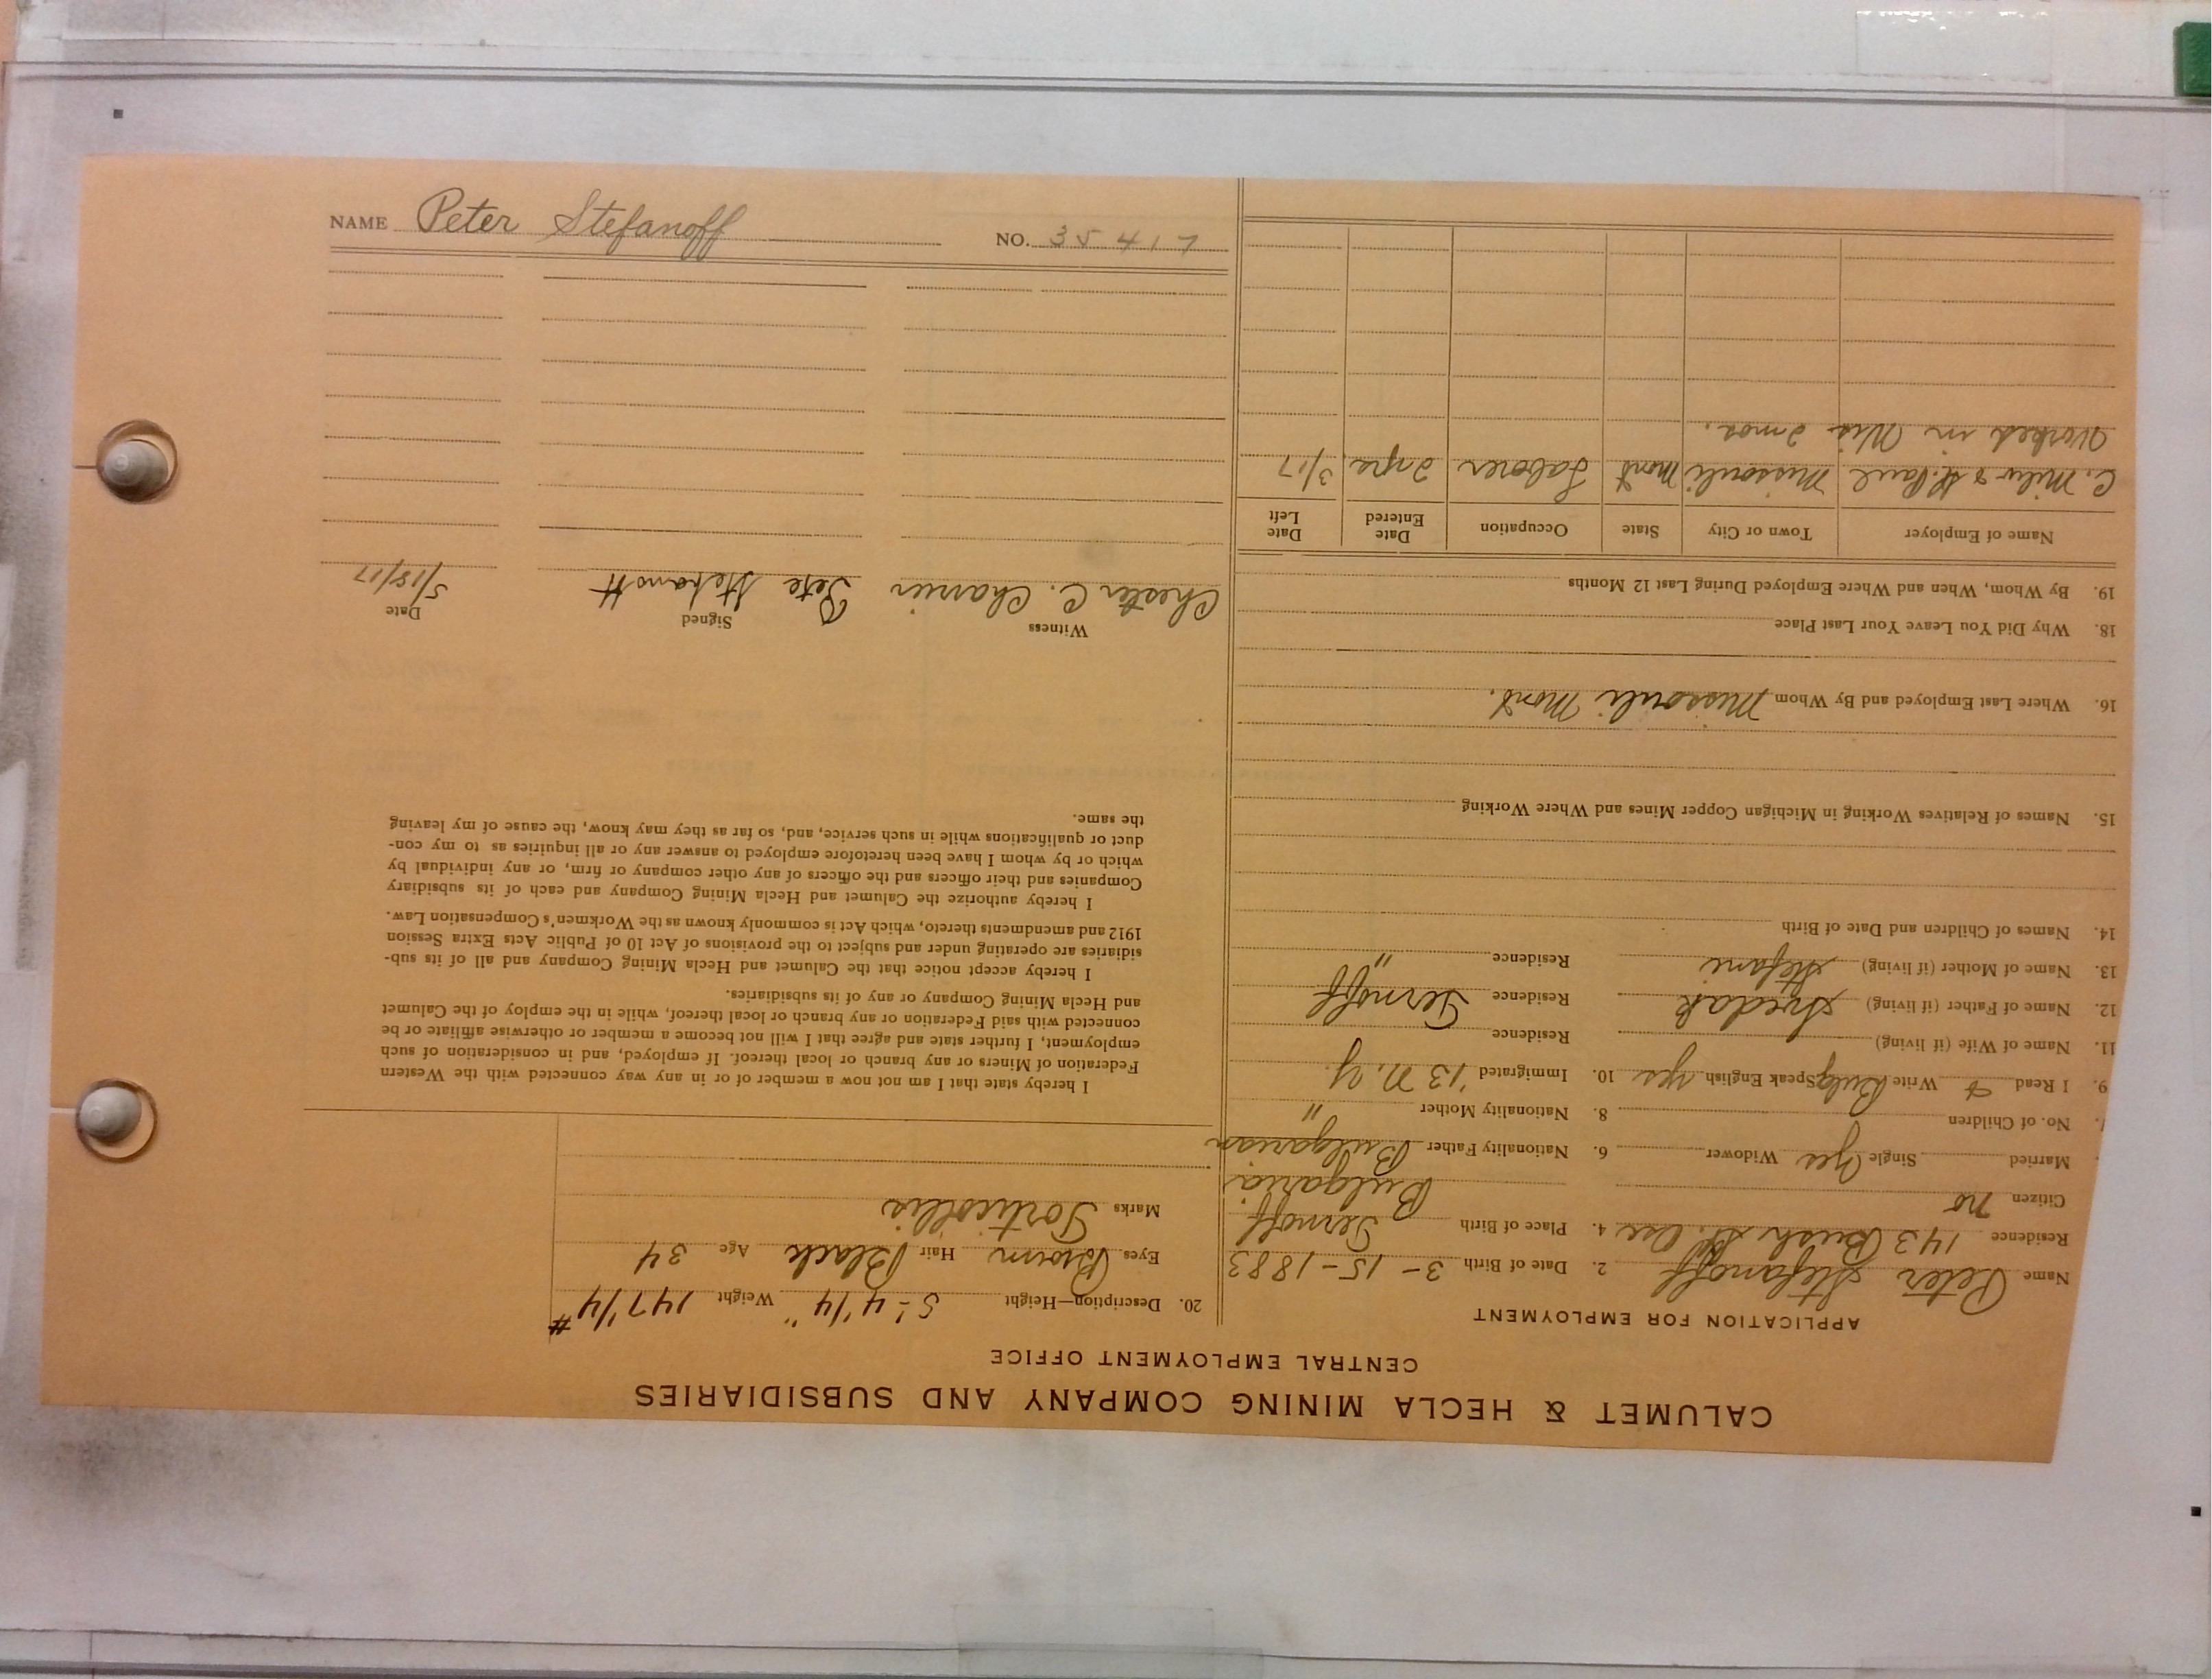 CALUMET & HECLA MINING COMPANY AND SUBSIDIARIES
CENTRAL EMPLOYMENT OFFICE
APPLICATION FOR EMPLOYMENT
Name Peter Stefanoff 2. Date of Birth 3-15-1883
Residence 143 Bush St. 4. Place of Birth
Citizen no Bulgaria
Married Single Yes Widower 6. Nationality Father Bulgarian
No. of Children 8. Nationality Mother "
9. I Read & Write Bulg Speak English yes 10. Immigrated '13 N.Y.
11. Name of Wife (if living) Residence
12. Name of Father (if living) Residence
13. Name of Mother (if living) Stefani Residence "
14. Names of Children and Date of Birth
15. Names of Relatives Working in Michigan Copper Mines and Where Working
16. Where Last Employed and By Whom Missouli Mont.
18. Why Did You Leave Your Last Place
19. By Whom, When and Where Employed During Last 12 Months
Name of Employer Town or City State Occupation Date Entered Date Left
C. Milw & St. Paul Missouli Mont Laborer 2 yrs. 3/17
Worked in Wis 2 mos.
20. Description—Height 5'-4 1/4" Weight 147 1/4 #
Eyes Brown Hair Black Age 34
Marks Torticollis
I hereby state that I am not now a member of or in any way connected with the Western
Federation of Miners or any branch or local thereof. If employed, and in consideration of such
employment, I further state and agree that I will not become a member or otherwise affiliate or be
connected with said Federation or any branch or local thereof, while in the employ of the Calumet
and Hecla Mining Company or any of its subsidiaries.
I hereby accept notice that the Calumet and Hecla Mining Company and all of its sub-
sidiaries are operating under and subject to the provisions of Act 10 of Public Acts Extra Session
1912 and amendments thereto, which Act is commonly known as the Workmen's Compensation Law.
I hereby authorize the Calumet and Hecla Mining Company and each of its subsidiary
Companies and their officers and the officers of any other company or firm, or any individual by
which or by whom I have been heretofore employed to answer any or all inquiries as to my con-
duct or qualifications while in such service, and, so far as they may know, the cause of my leaving
the same.
Witness Signed Date
Chester C. Charrier Pete Stefanoff 5/18/17
NAME Peter Stefanoff NO. 35417